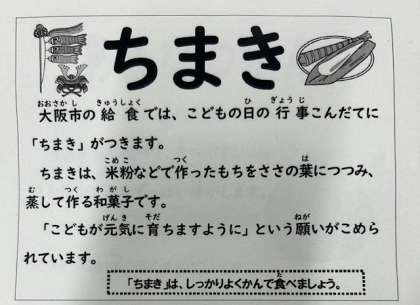 ちまき
大阪市の給食では、こどもの日の行事こんだてに
「ちまき」がつきます。
ちまきは、米粉などで作ったもちをささの葉につつみ、
蒸して作る和菓子です。
「こどもが元気に育ちますように」という願いがこめら
れています。
「ちまき」は、しっかりよくかんで食べましょう。